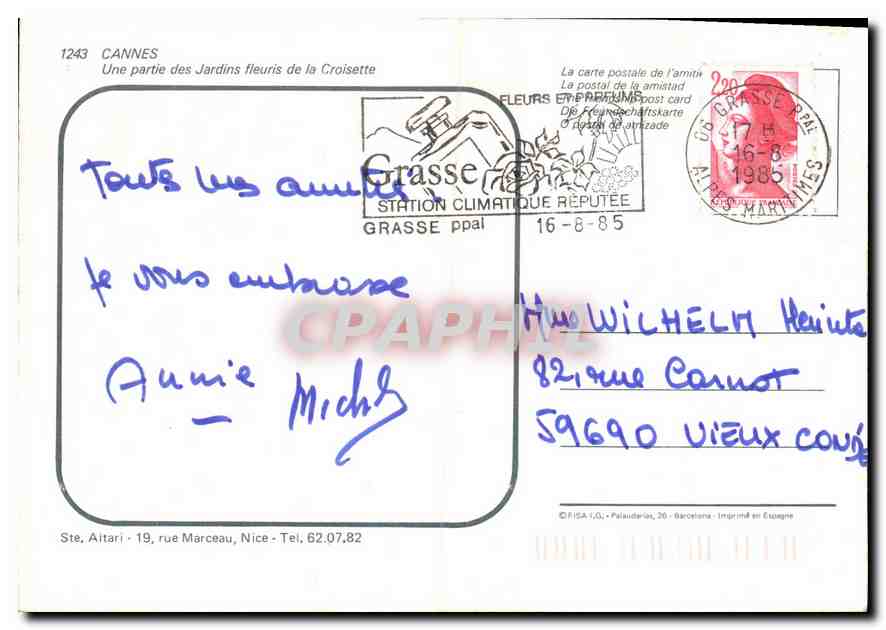 1243 CANNES
Une partie des Jardins fleuris de la Croisette
La carte postale de l'amitié
La postal de la amistad
The friendship post card
Die Freundschaftskarte
O postal de amizade
FLEURS ET PARFUMS
Grasse
STATION CLIMATIQUE RÉPUTÉE
GRASSE PPal 16-8-85
2,20
06 GRASSE PPAL
17 H
16-8
1985
ALPES MARITIMES
Toutes nos amitiés
je vous embrasse
Annie Michel
CPAPHIL
Mme WILHELM
82, rue Carnot
59690 VIEUX CONDÉ
© FISA I.G. - Palaudarias, 26 - Barcelona - Imprimé en Espagne
Ste. Aitari - 19, rue Marceau, Nice - Tel. 62.07.82